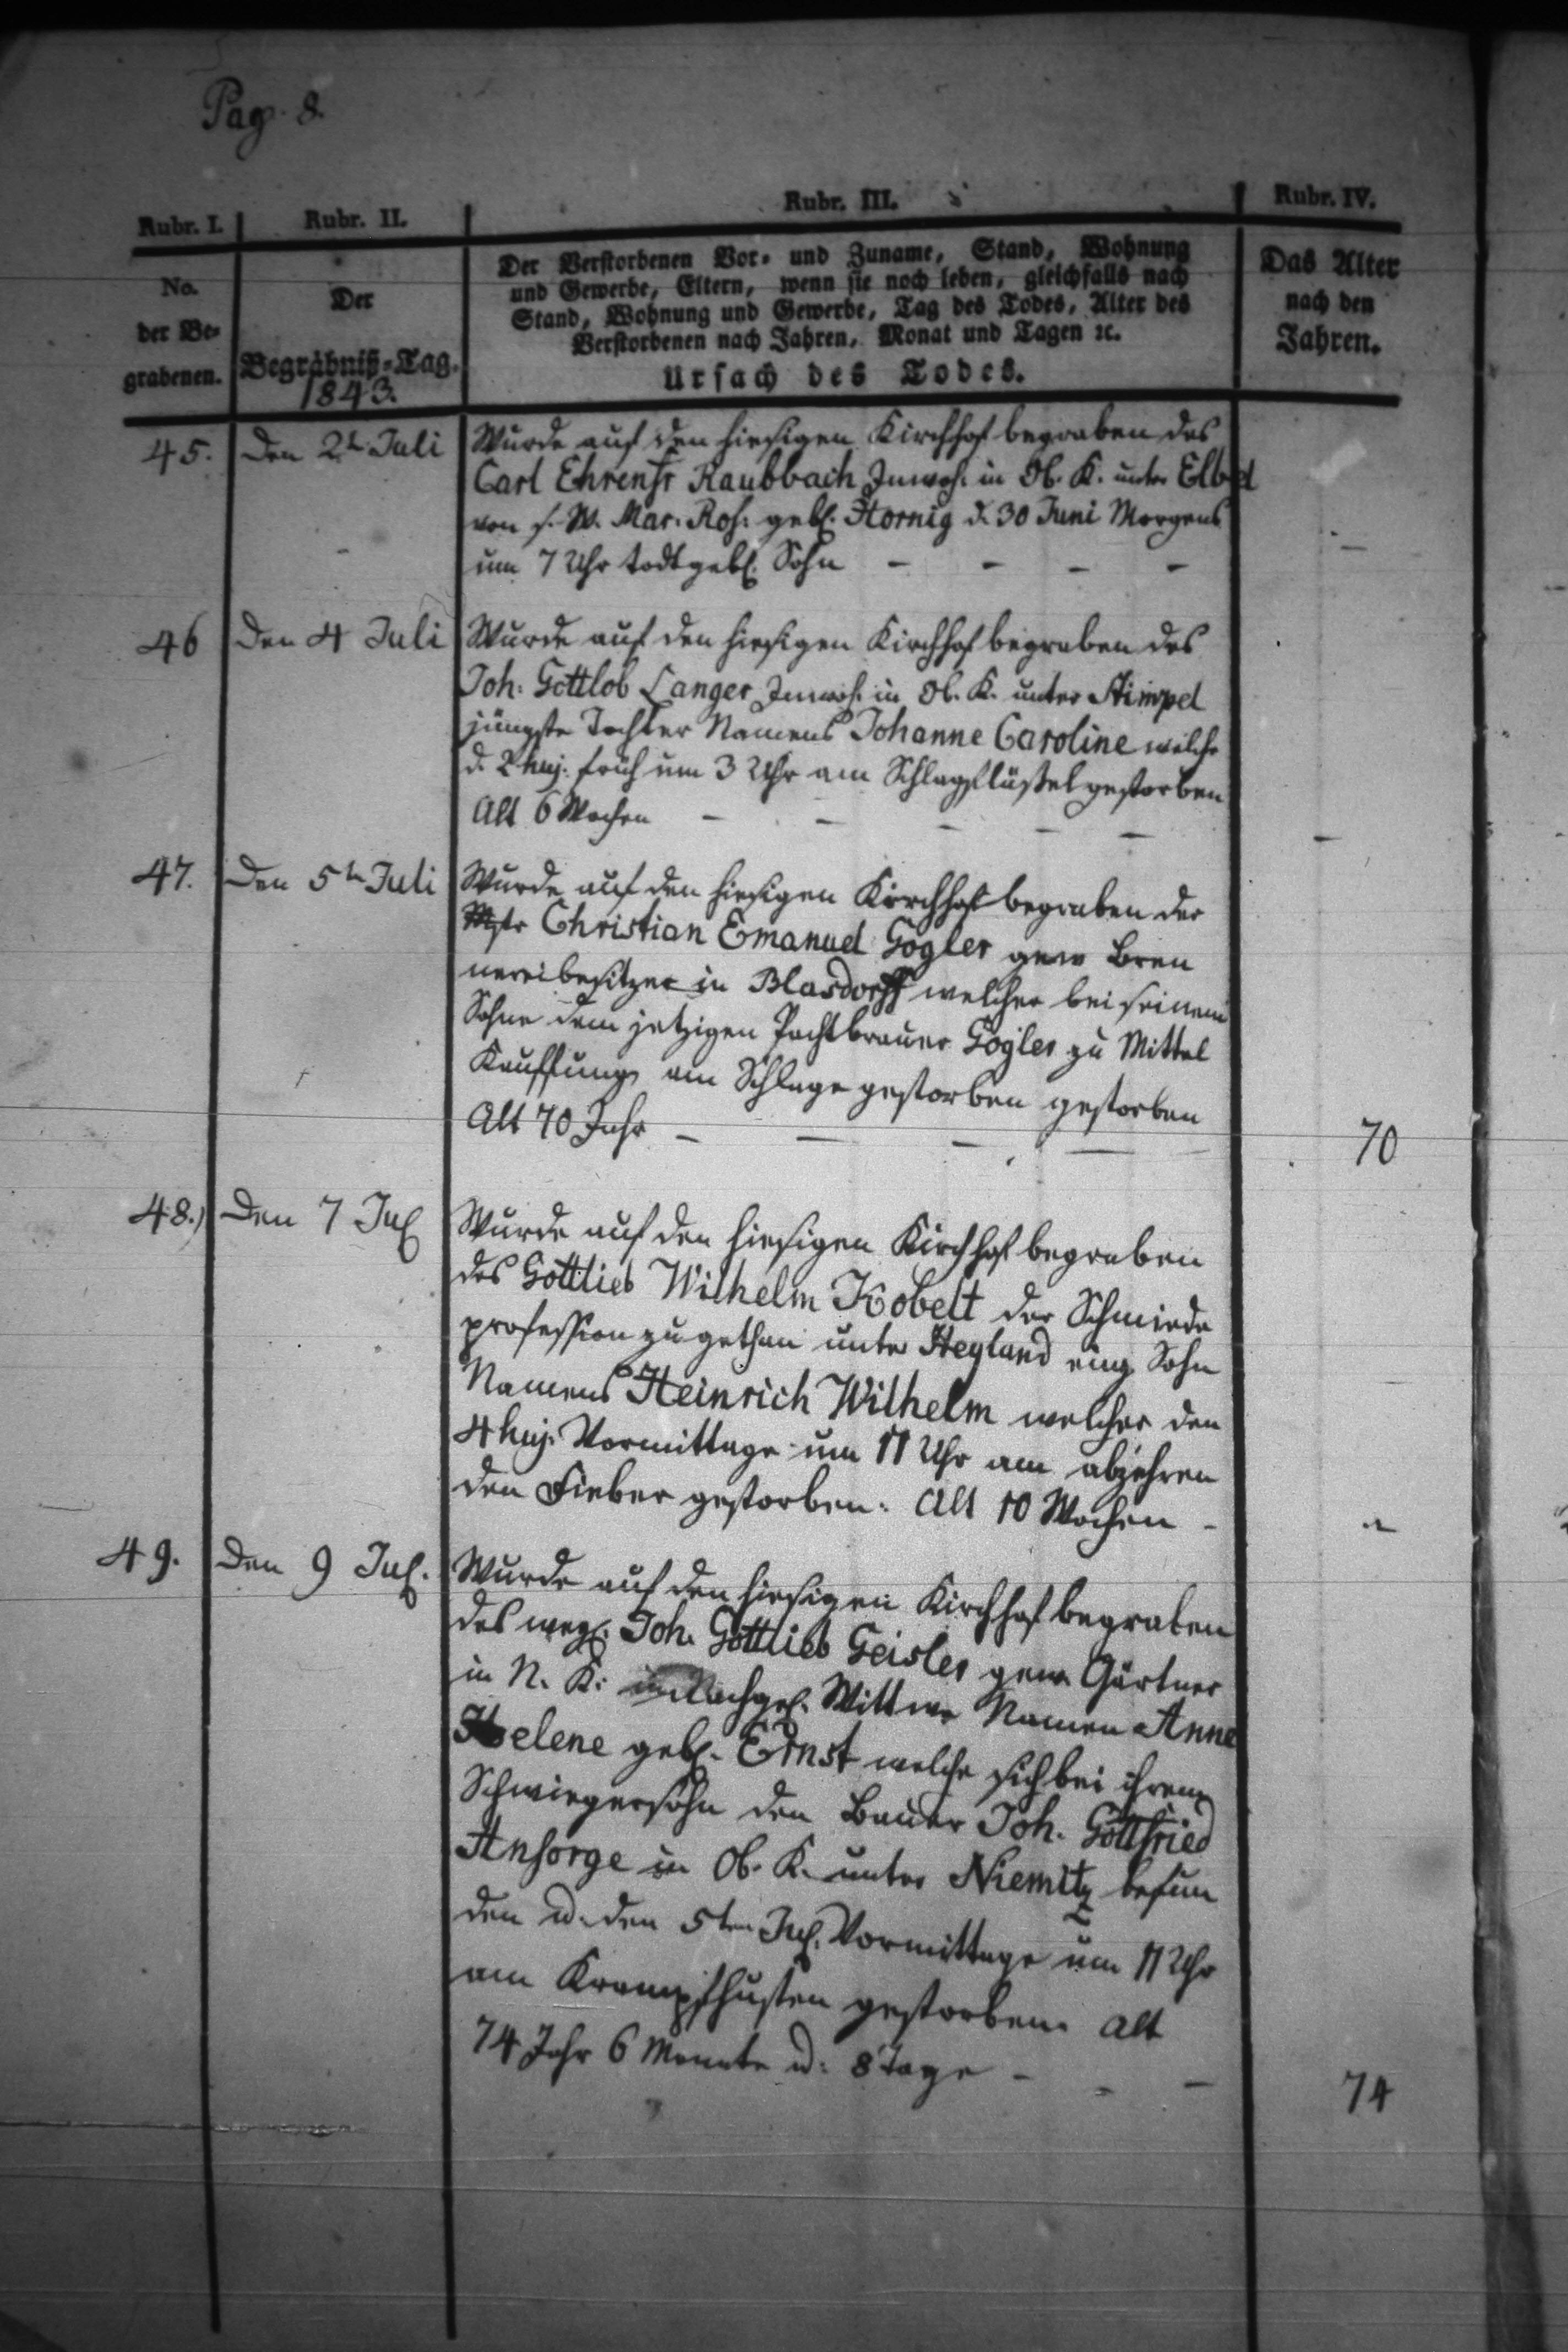 Pag. 8.
Rubr. I. Rubr. II. Rubr. III. Rubr. IV.
No.
der Be-
grabenen.
Der
Begräbniß-Tag.
1843.
Der Verstorbenen Vor- und Zuname, Stand, Wohnung
und Gewerbe, Eltern, wenn sie noch leben, gleichfalls nach
Stand, Wohnung und Gewerbe, Tag des Todes, Alter des
Verstorbenen nach Jahren, Monat und Tagen ꝛc.
Ursach des Todes.
Das Alter
nach den
Jahren.
45. Den 2t Juli Wurde auf den hiesigen Kirchhof begraben des
Carl Ehrenfr Raubbach Inwoh. in Ob. K. unter Elbel
von s. W. Mar. Ros. geb. Hornig d. 30 Juni Morgens
um 7 Uhr todtgeb. Sohn - - - - —
46 Den 4 Juli Wurde auf den hiesigen Kirchhof begraben des
Joh. Gottlob Langer Inwoh. in Ob. K. unter Stimpel
jüngste Tochter Namens Johanne Caroline welche
d. 2 huj. früh um 3 Uhr am Schlagflüßel gestorben
Alt 6 Wochen - - - - - —
47. Den 5tn Juli Wurde auf den hiesigen Kirchhof begraben der
Mstr Christian Emanuel Gögler gew Bren
nereibesitzer in Blasdorff welcher bei seinem
Sohne dem jetzigen Pachtbrauer Gögler zu Mittel
Kauffung am Schlage gestorben gestorben
Alt 70 Jahr - - - - 70
48.) Den 7 Jul Wurde auf den hiesigen Kirchhof begraben
des Gottlieb Wilhelm Kobelt der Schmiede
profession zugethan unter Heyland eing Sohn
Namens Heinrich Wilhelm welcher den
4 huj. Vormittage um 11 Uhr am abzehren
den Fieber gestorben. Alt 10 Wochen -
49. Den 9 Jul. Wurde auf den hiesigen Kirchhof begraben
des Joh. Gottlieb Geisler gew. Gärtner
in N. K. Nachgel. Wittwe Namen Anne
Helene geb. Ernst welche sich bei ihrem
Schwiegersohn den Bauer Joh. Gottfried
Ansorge in Ob. K. unter Niemitz befun
den u. den 5ten Jul. Vormittage um 11 Uhr
am Krampfhusten gestorben. Alt
74 Jahr 6 Monate u. 8 Tage - - - 74